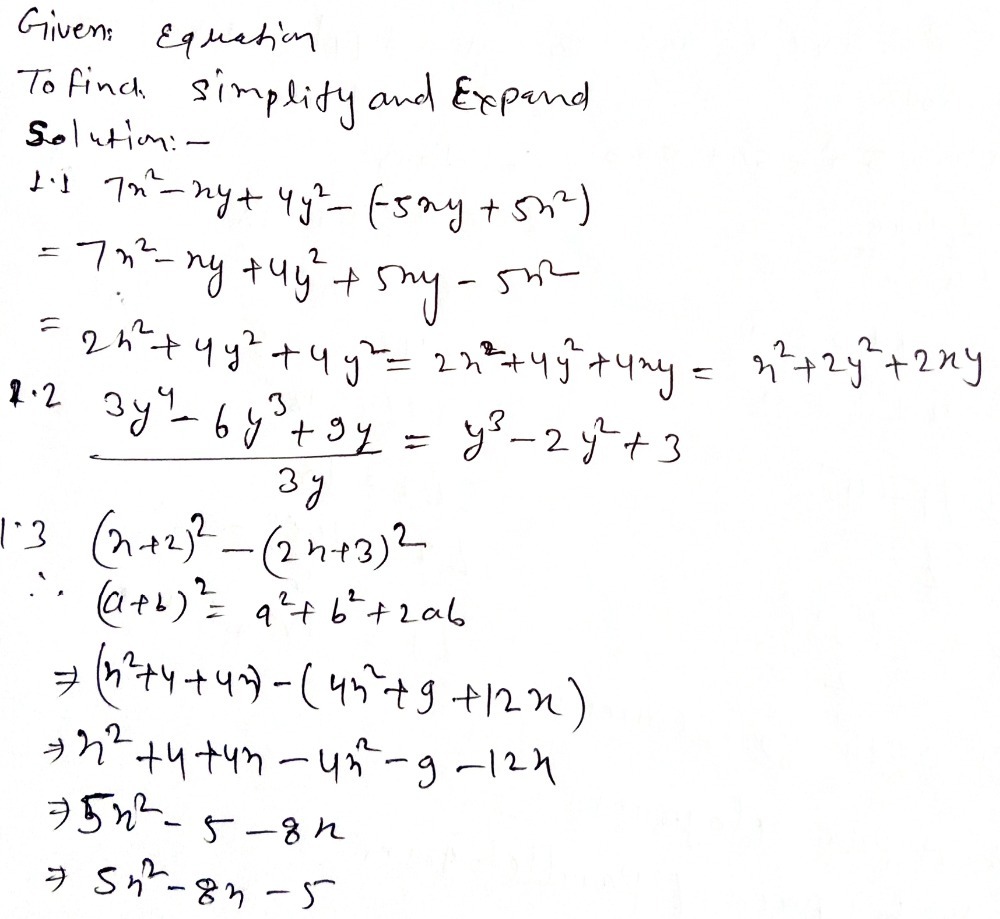 Given: Equation
To find. Simplify and Expand
Solution:-
1.1 7x² - xy + 4y² - (-5xy + 5x²)
= 7x² - xy + 4y² + 5xy - 5x²
= 2x² + 4y² + 4y² = 2x² + 4y² + 4xy = x² + 2y² + 2xy
1.2 (3y⁴ - 6y³ + 9y)/3y = y³ - 2y² + 3
1.3 (x+2)² - (2x+3)²
∴ (a+b)² = a² + b² + 2ab
⇒ (x² + 4 + 4x) - (4x² + 9 + 12x)
⇒ x² + 4 + 4x - 4x² - 9 - 12x
⇒ 5x² - 5 - 8x
⇒ 5x² - 8x - 5